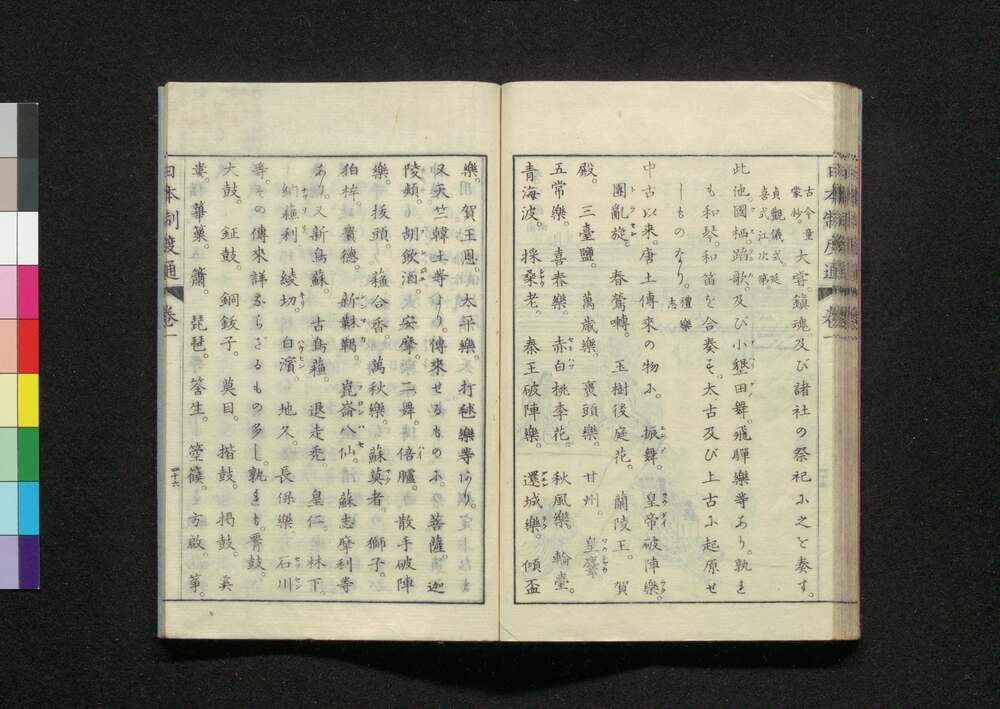 日本制度通 卷一
古今童蒙抄。大甞。鎮魂及び諸社の祭祀ふ之を奏す。
貞觀儀式延喜式江次第
此他。國栖。踏歌。及び小墾田舞。飛驒樂等あり。孰も
も和琴。和笛を合奏そ。太古及び上古ふ起原せ
しものなり。禮樂志
中古以来。唐土傳來の物ふ。振舞。皇帝破陣樂。
團亂旋。春鶯囀。玉樹後庭花。蘭陵王。賀
殿。三臺鹽。萬歳樂。裹頭樂。甘州。皇麞
五常樂。喜春樂。赤白桃李花。秋風樂。輪臺。
青海波。採桑老。秦王破陣樂。還城樂。傾盃
樂。賀王恩。太平樂。打毬樂等なり。
又天竺韓土等より。傳來せるものふ。菩薩。迦
陵頻。胡飲酒。安摩。二舞。倍臚。散手破陣
樂。拔頭。蘓合香。萬秋樂。蘇莫者。獅子。
狛桙。貴德。新靺鞨。崑崙八仙。蘇志摩利等
あり。又新鳥蘇。古鳥蘓。退走禿。皇仁。林下。
納蘓利 綾切。白濱。地久。長保樂 石川
等。その傳來詳ならざるもの多し。孰るも。羯鼓。
大鼓。鉦鼓。銅鈸子。莫目。揩鼓。掲鼓。奚
婁。篳篥。簫。琵琶。荅生。箜篌。方啟。箏。
日本制度通 卷一 四十六